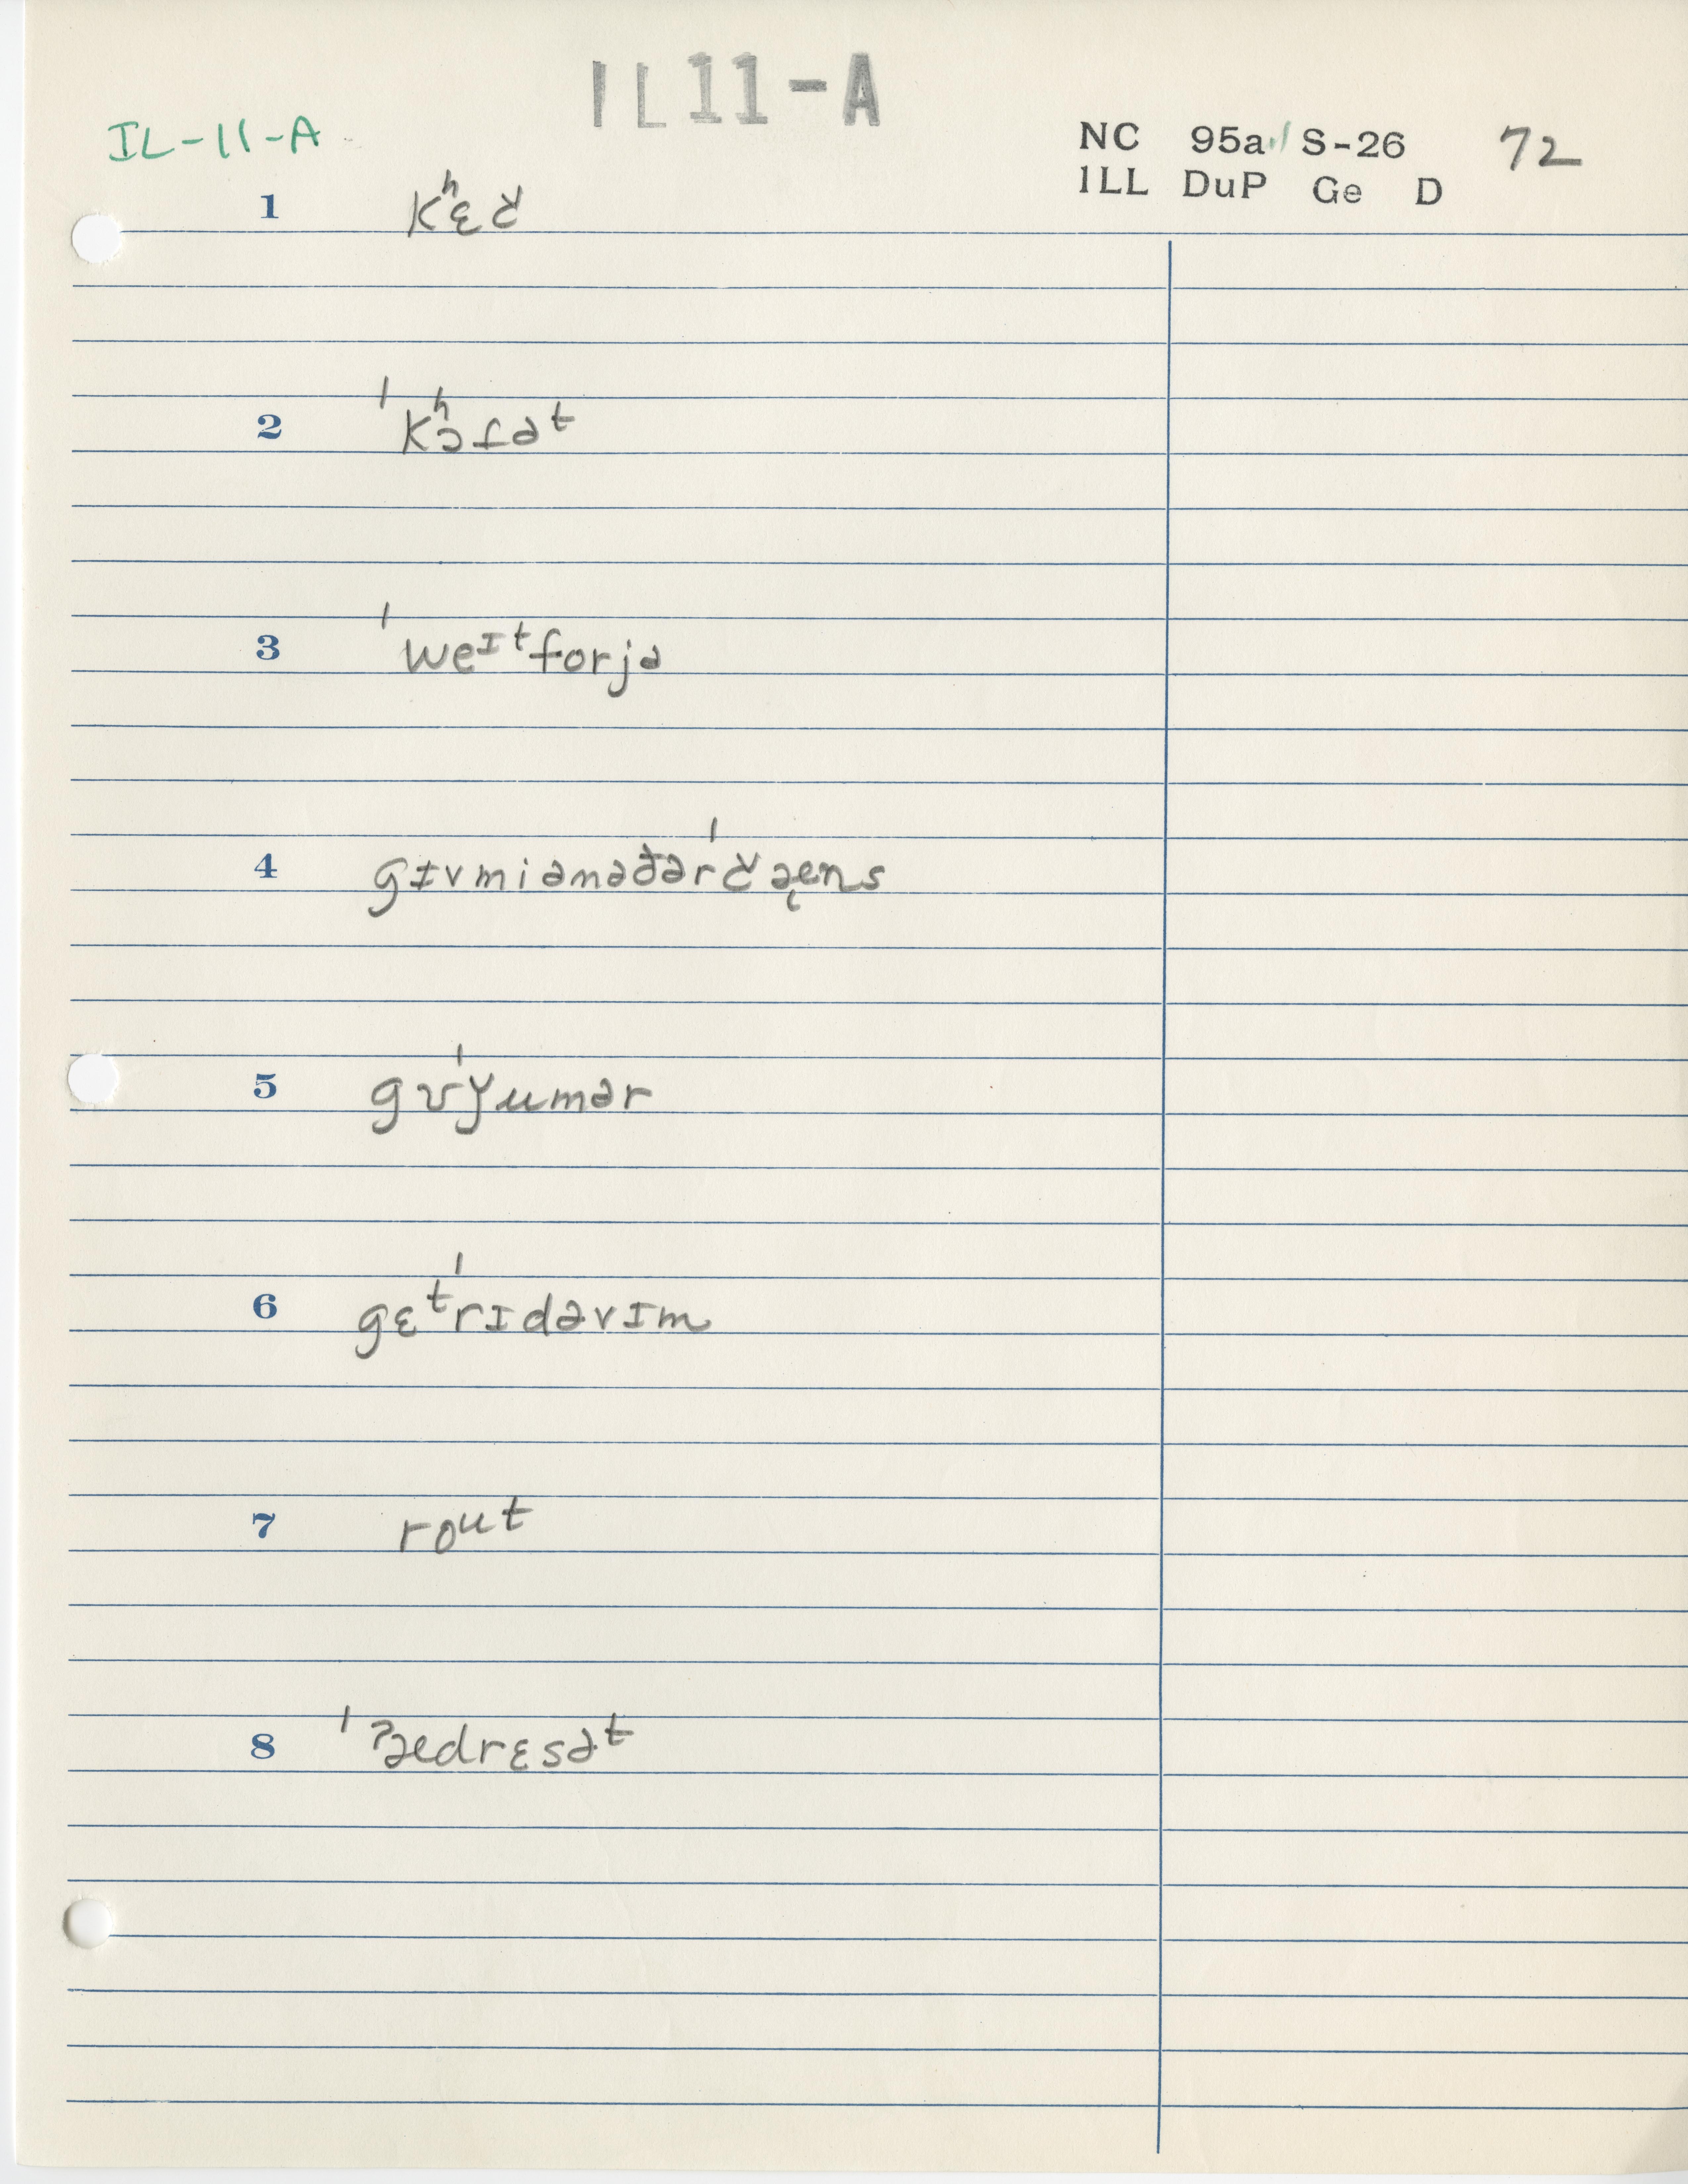 IL11-A
IL-11-A
NC 95a/ S-26 72
ILL DuP Ge D
1 kʰɛč
2 ˈkʰɔfət
3 ˈweɪᵗforjə
4 gɪvmiənəðərˈčæ̨ns
5 gʊˈy̌umər
6 gɛᵗˈrɪdəvɪm
7 roᵘᵗ
8 ˈˀædrɛsəᵗ